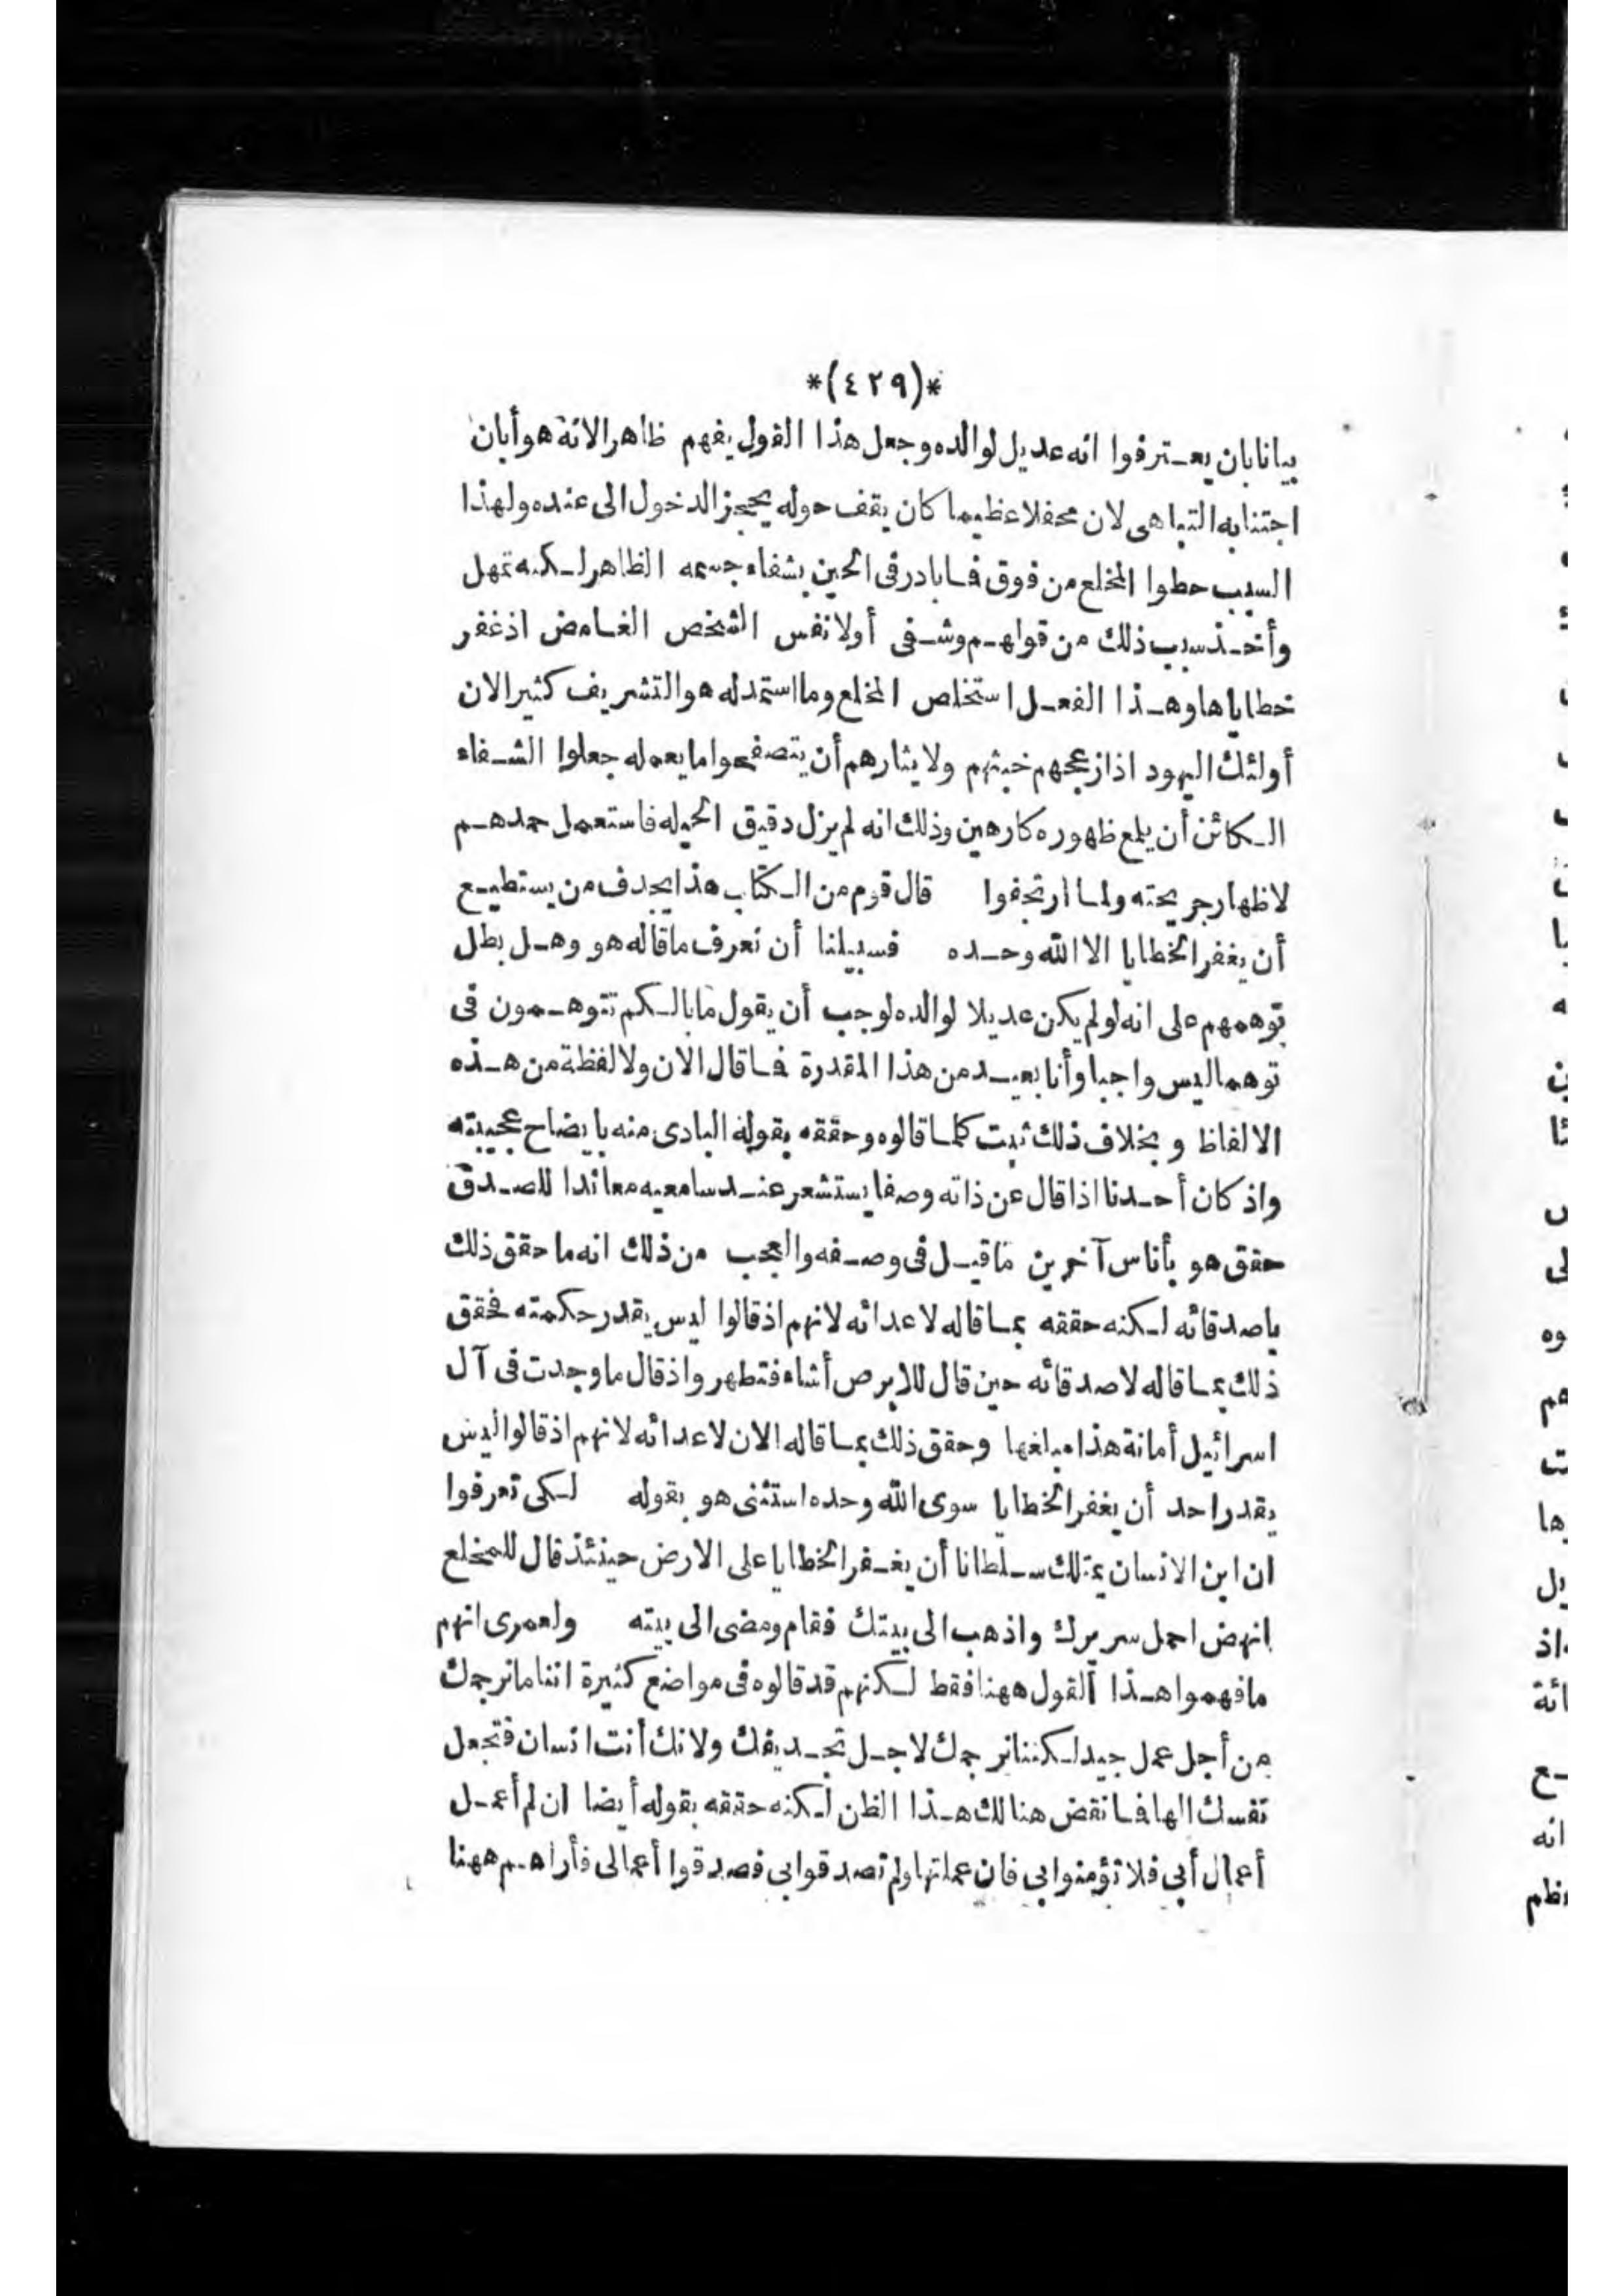 *(٤٢٩)*
بيانا بان يعترفوا انه عديل لوالده وجعل هذا القول يفهم ظاهرا لانه هو أبان
اجتنابه التباهى لان محفلا عظيما كان يقف حوله يحجز الدخول الى عنده ولهذا
السبب حطوا المخلع من فوق فما بادر فى الحين بشفاء جسمه الظاهر لكنه تمهل
وأخذ سبب ذلك من قولهم وشفى أولا نفس الشخص الغامض اذ غفر
خطاياها وهذا الفعل استخلص المخلع وما استمد له هو التشريف كثيرا لان
أولئك اليهود اذ ازعجهم خبثهم ولا يثارهم أن يتصفحوا ما يعمله جعلوا الشفاء
الكائن أن يلمع ظهوره كارهين وذلك انه لم يزل دقيق الحيله فاستعمل حمدهم
لاظهار جريحته ولما ارتجفوا قال قوم من الكتاب هذا يجدف من يستطيع
أن يغفر الخطايا الا الله وحده فسبيلنا أن نعرف ما قاله هو وهل بطل
توهمهم على انه لو لم يكن عديلا لوالده لوجب أن يقول ما بالكم تتوهمون فى
توهما ليس واجبا وأنا بعيد من هذا المقدرة فما قال الان ولا لفظة من هذه
الالفاظ و بخلاف ذلك ثبت كلما قالوه وحققه بقوله البادى منه بايضاح عجيبته
واذ كان أحدنا اذا قال عن ذاته وصفا يستشعر عند سامعيه معاندا للصدق
حقق هو بأناس آخرين ما قيل فى وصفه والعجب من ذلك انه ما حقق ذلك
باصدقائه لكنه حققه بما قاله لاعدائه لانهم اذ قالوا ليس يقدر حكمته فحقق
ذلك بما قاله لاصدقائه حين قال للابرص أشاء فتطهر واذ قال ما وجدت فى آل
اسرائيل أمانة هذا مبلغها وحقق ذلك بما قاله الان لاعدائه لانهم اذ قالوا ليس
يقدر احد أن يغفر الخطايا سوى الله وحده استثنى هو بقوله لكى تعرفوا
ان ابن الانسان يمتلك سلطانا أن يغفر الخطايا على الارض حينئذ قال للمخلع
انهض احمل سريرك واذهب الى بيتك فقام ومضى الى بيته ولعمرى انهم
ما فهموا هذا القول ههنا فقط لكنهم قد قالوه فى مواضع كثيرة اننا ما نرجمك
من أجل عمل جيد لكننا نرجمك لاجل تجديفك ولانك أنت انسان فتجعل
نفسك الها فما نقض هنالك هذا الظن لكنه حققه بقوله أيضا ان لم أعمل
أعمال أبى فلا تؤمنوا بى فان عملتها ولم تصدقوا بى فصدقوا أعمالى فأراهم ههنا